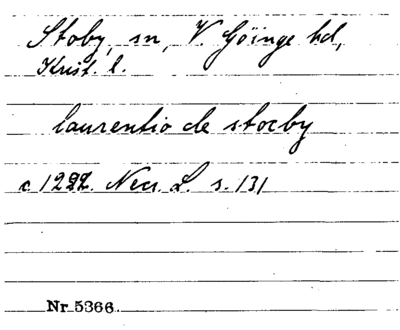 Stoby, sn, V. Göinge hd,
Krist. l.
laurentio de stocby
c Necr. L. s. 131
Nr 5366.